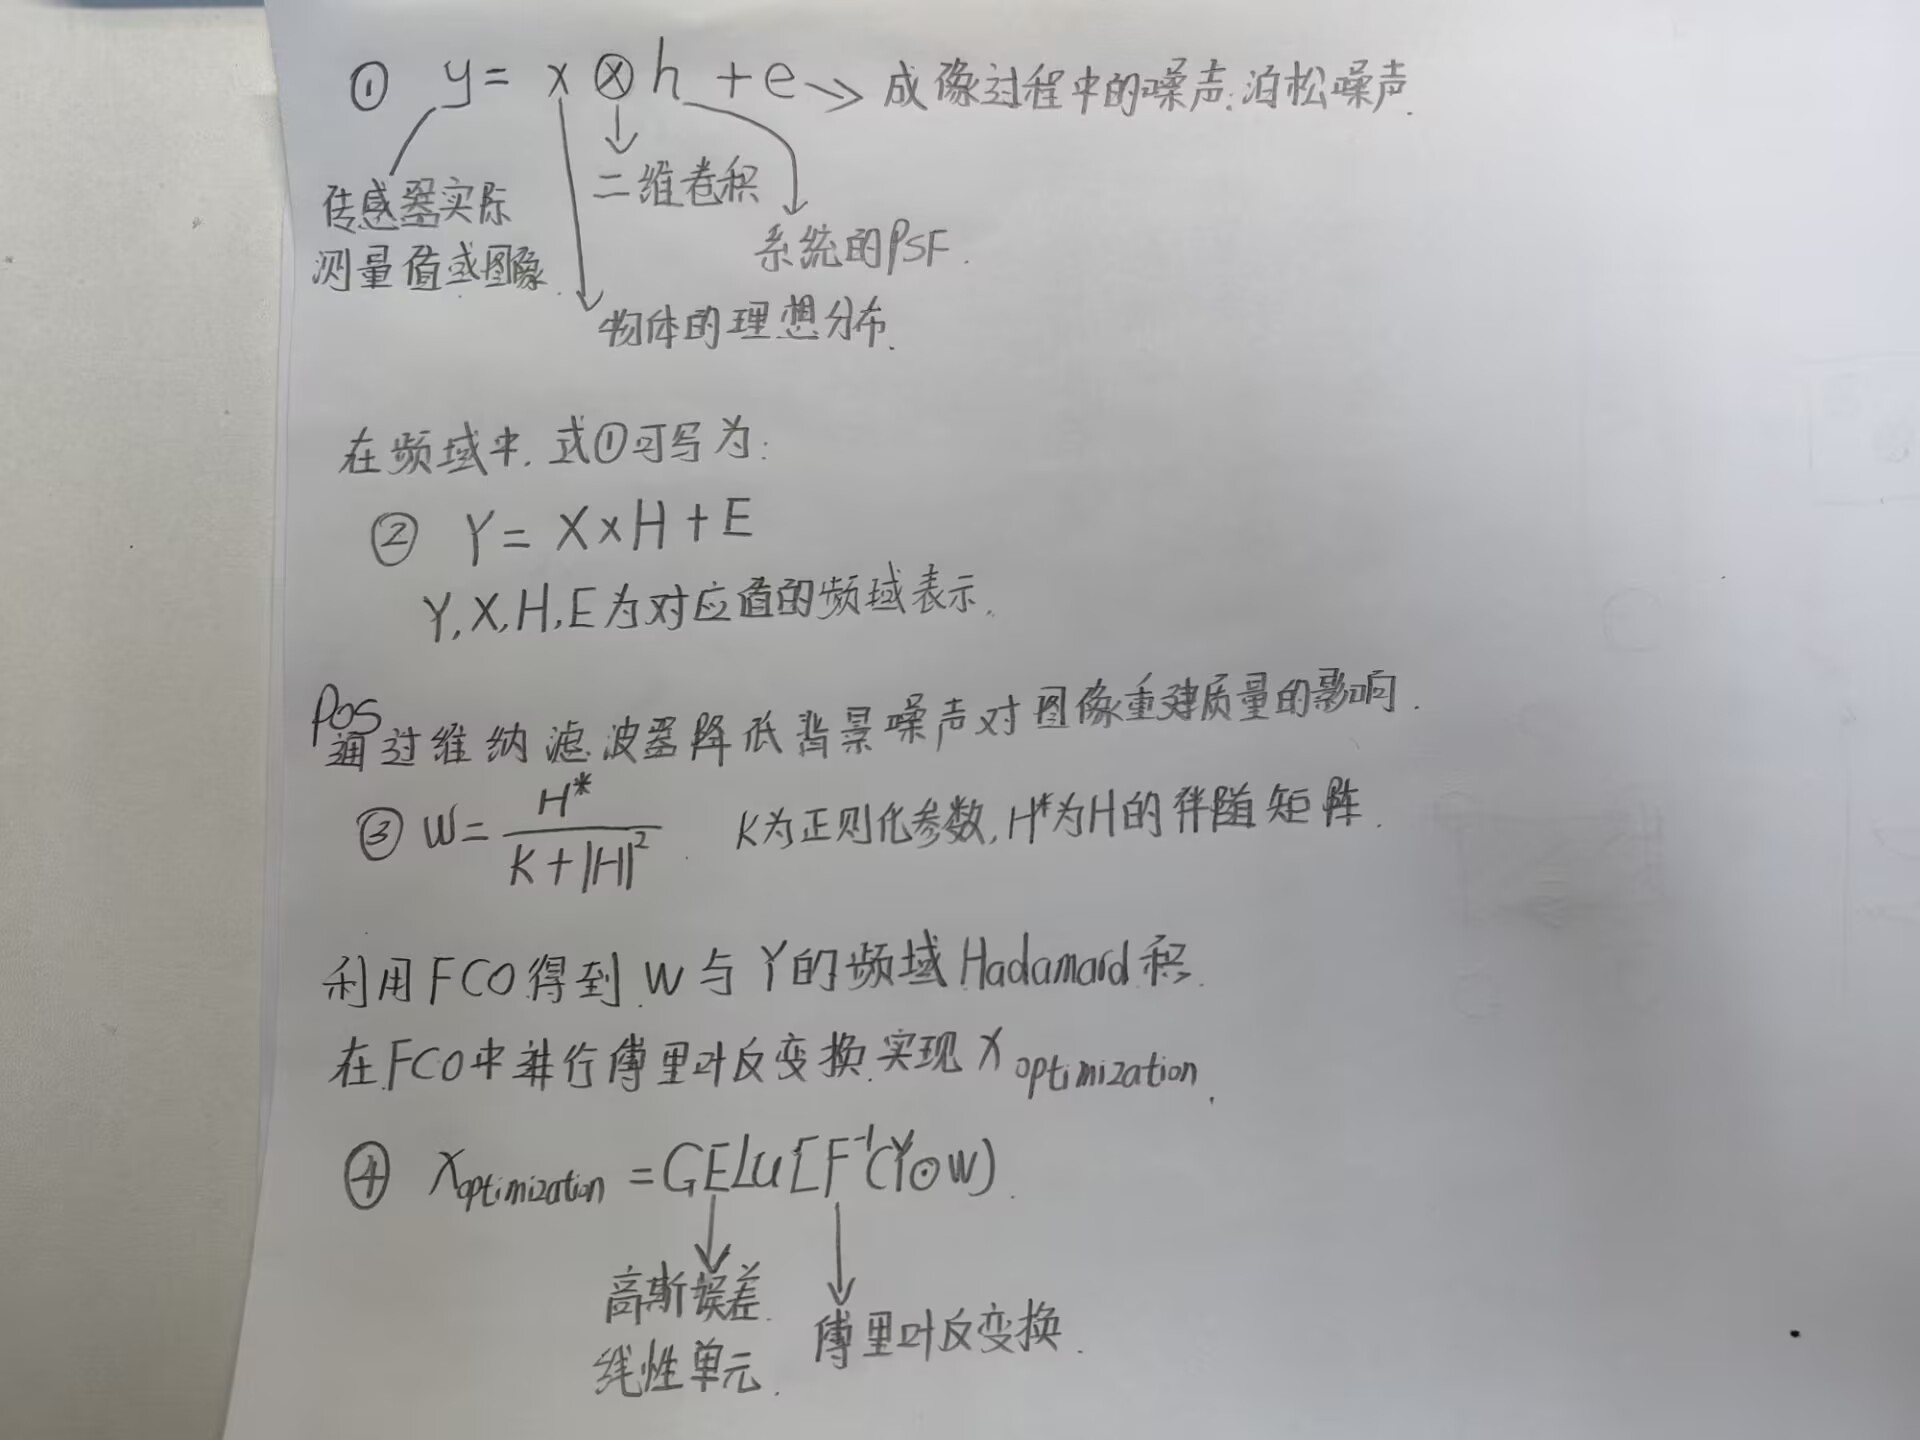 ① y = x ⊗ h + e → 成像过程中的噪声:泊松噪声.
二维卷积
传感器实际
测量值或图像.
系统的PSF.
物体的理想分布.
在频域中,式①可写为:
② Y = X × H + E
Y,X,H,E为对应值的频域表示.
POS
通过维纳滤波器降低背景噪声对图像重建质量的影响.
③ W = H* / (K + |H|²) . K为正则化参数,H*为H的伴随矩阵.
利用FCO得到W与Y的频域Hadamard积.
在FCO中进行傅里叶反变换.实现X optimization.
④ X optimization = GELU[F⁻¹(Y⊙W).
高斯误差.
线性单元.
傅里叶反变换.